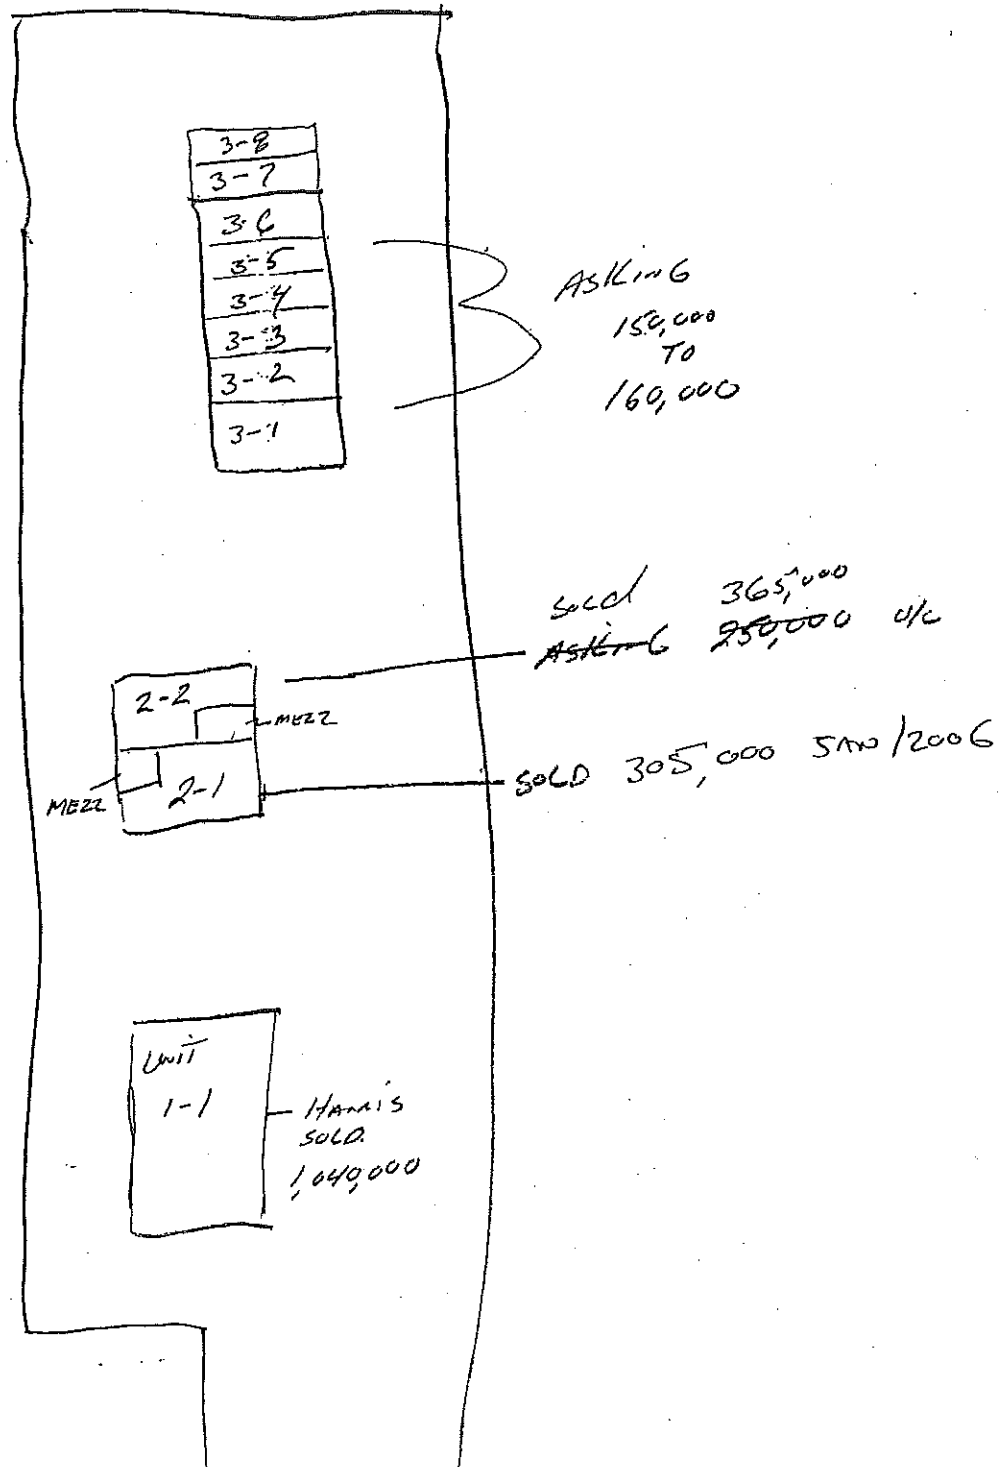 3-8
3-7
3-6
3-5
3-4
3-3
3-2
3-1
ASKING
150,000
TO
160,000
Sold 365,000
ASKING 250,000 U/C
2-2
MEZZ
MEZZ
2-1
SOLD 305,000 JAN/2006
UNIT
1-1
HARRIS
SOLD.
1,040,000